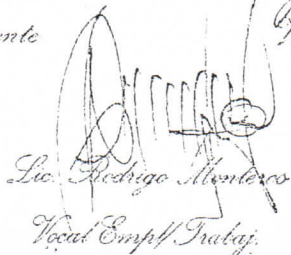 ente
Lic. Rodrigo Monterco
Vocal Empl/ Trabaj.